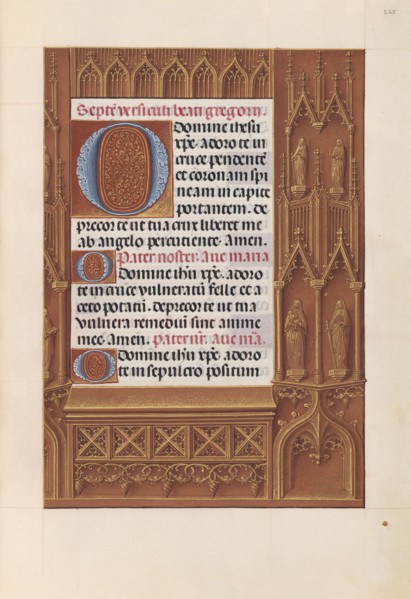 Septē versiculi beati gregorii.
O Domine ihesu
xp̄e. adoro te in
cruce pendentē
et coronam spi
neam in capite
portantem. de
precor te ut tua crux liberet me
ab angelo percutiente. Amen.
Pater noster. Aue maria
O Domine ihū xp̄e. adoro
te in cruce vulneratū felle et a
ceto potatū. deprecor te ut tua
vulnera remediū sint anime
mee. Amen. Pater nr̄. Aue mr̄a.
O Domine ihū xp̄e. adoro
te in sepulcro positum